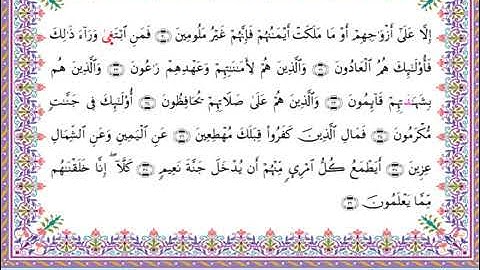 إِلَّا عَلَىٰٓ أَزْوَٰجِهِمْ أَوْ مَا مَلَكَتْ أَيْمَـٰنُهُمْ فَإِنَّهُمْ غَيْرُ مَلُومِينَ ۝ فَمَنِ ٱبْتَغَىٰ وَرَآءَ ذَٰلِكَ
فَأُو۟لَـٰٓئِكَ هُمُ ٱلْعَادُونَ ۝ وَٱلَّذِينَ هُمْ لِأَمَـٰنَـٰتِهِمْ وَعَهْدِهِمْ رَٰعُونَ ۝ وَٱلَّذِينَ هُم
بِشَهَـٰدَٰتِهِمْ قَآئِمُونَ ۝ وَٱلَّذِينَ هُمْ عَلَىٰ صَلَاتِهِمْ يُحَافِظُونَ ۝ أُو۟لَـٰٓئِكَ فِى جَنَّـٰتٍ
مُّكْرَمُونَ ۝ فَمَالِ ٱلَّذِينَ كَفَرُوا۟ قِبَلَكَ مُهْطِعِينَ ۝ عَنِ ٱلْيَمِينِ وَعَنِ ٱلشِّمَالِ
عِزِينَ ۝ أَيَطْمَعُ كُلُّ ٱمْرِئٍ مِّنْهُمْ أَن يُدْخَلَ جَنَّةَ نَعِيمٍ ۝ كَلَّآ ۖ إِنَّا خَلَقْنَـٰهُم
مِّمَّا يَعْلَمُونَ ۝